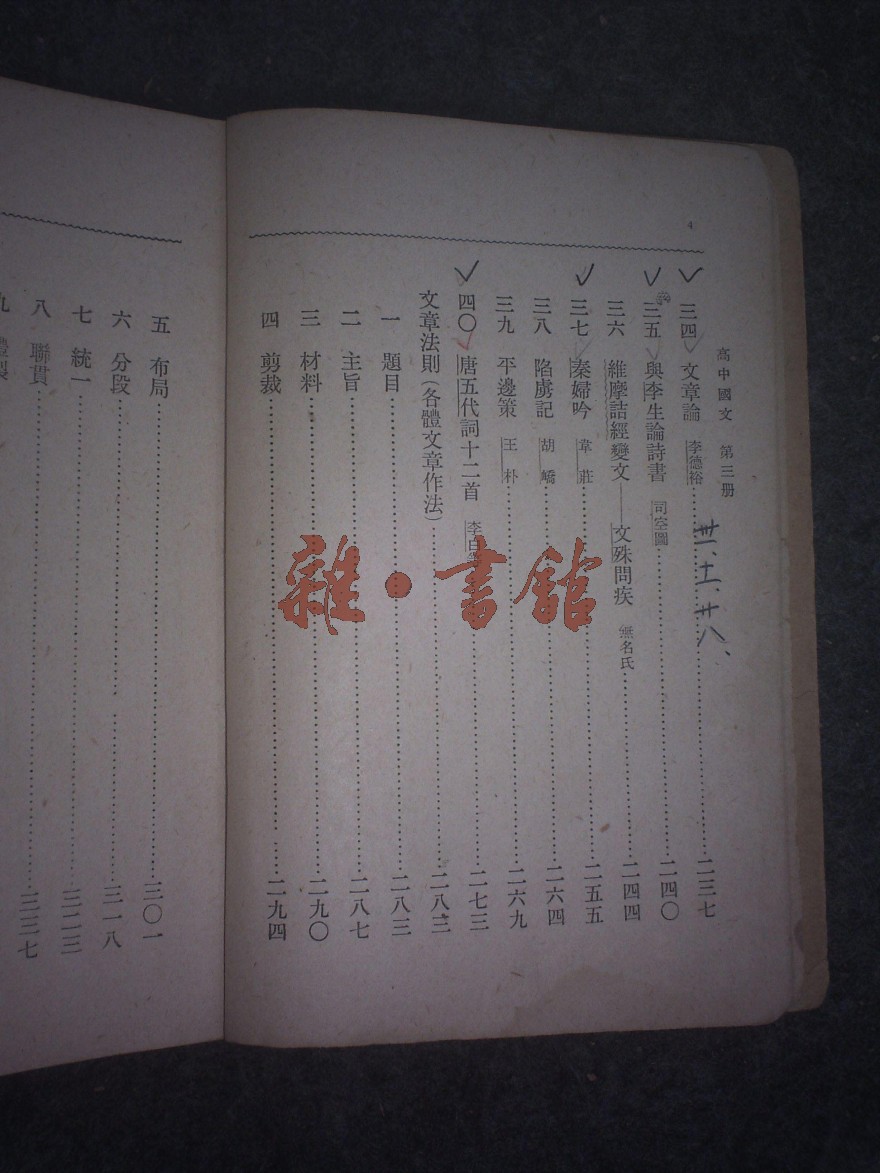 4
高中國文 第三册
卅、十一、廿八、
三四 文章論 李德裕 二三七
三五 與李生論詩書 司空圖 二四〇
三六 維摩詰經變文——文殊問疾 無名氏 二四四
三七 秦婦吟 韋莊 二五五
三八 陷虜記 胡嶠 二六四
三九 平邊策 王朴 二六九
四〇 唐五代詞十二首 李白 二七三
文章法則(各體文章作法) 二八三
一 題目 二八三
二 主旨 二八七
三 材料 二九〇
四 剪裁 二九四
五 布局 三〇一
六 分段 三一八
七 統一 三二三
八 聯貫 三三七
九
雜·書館